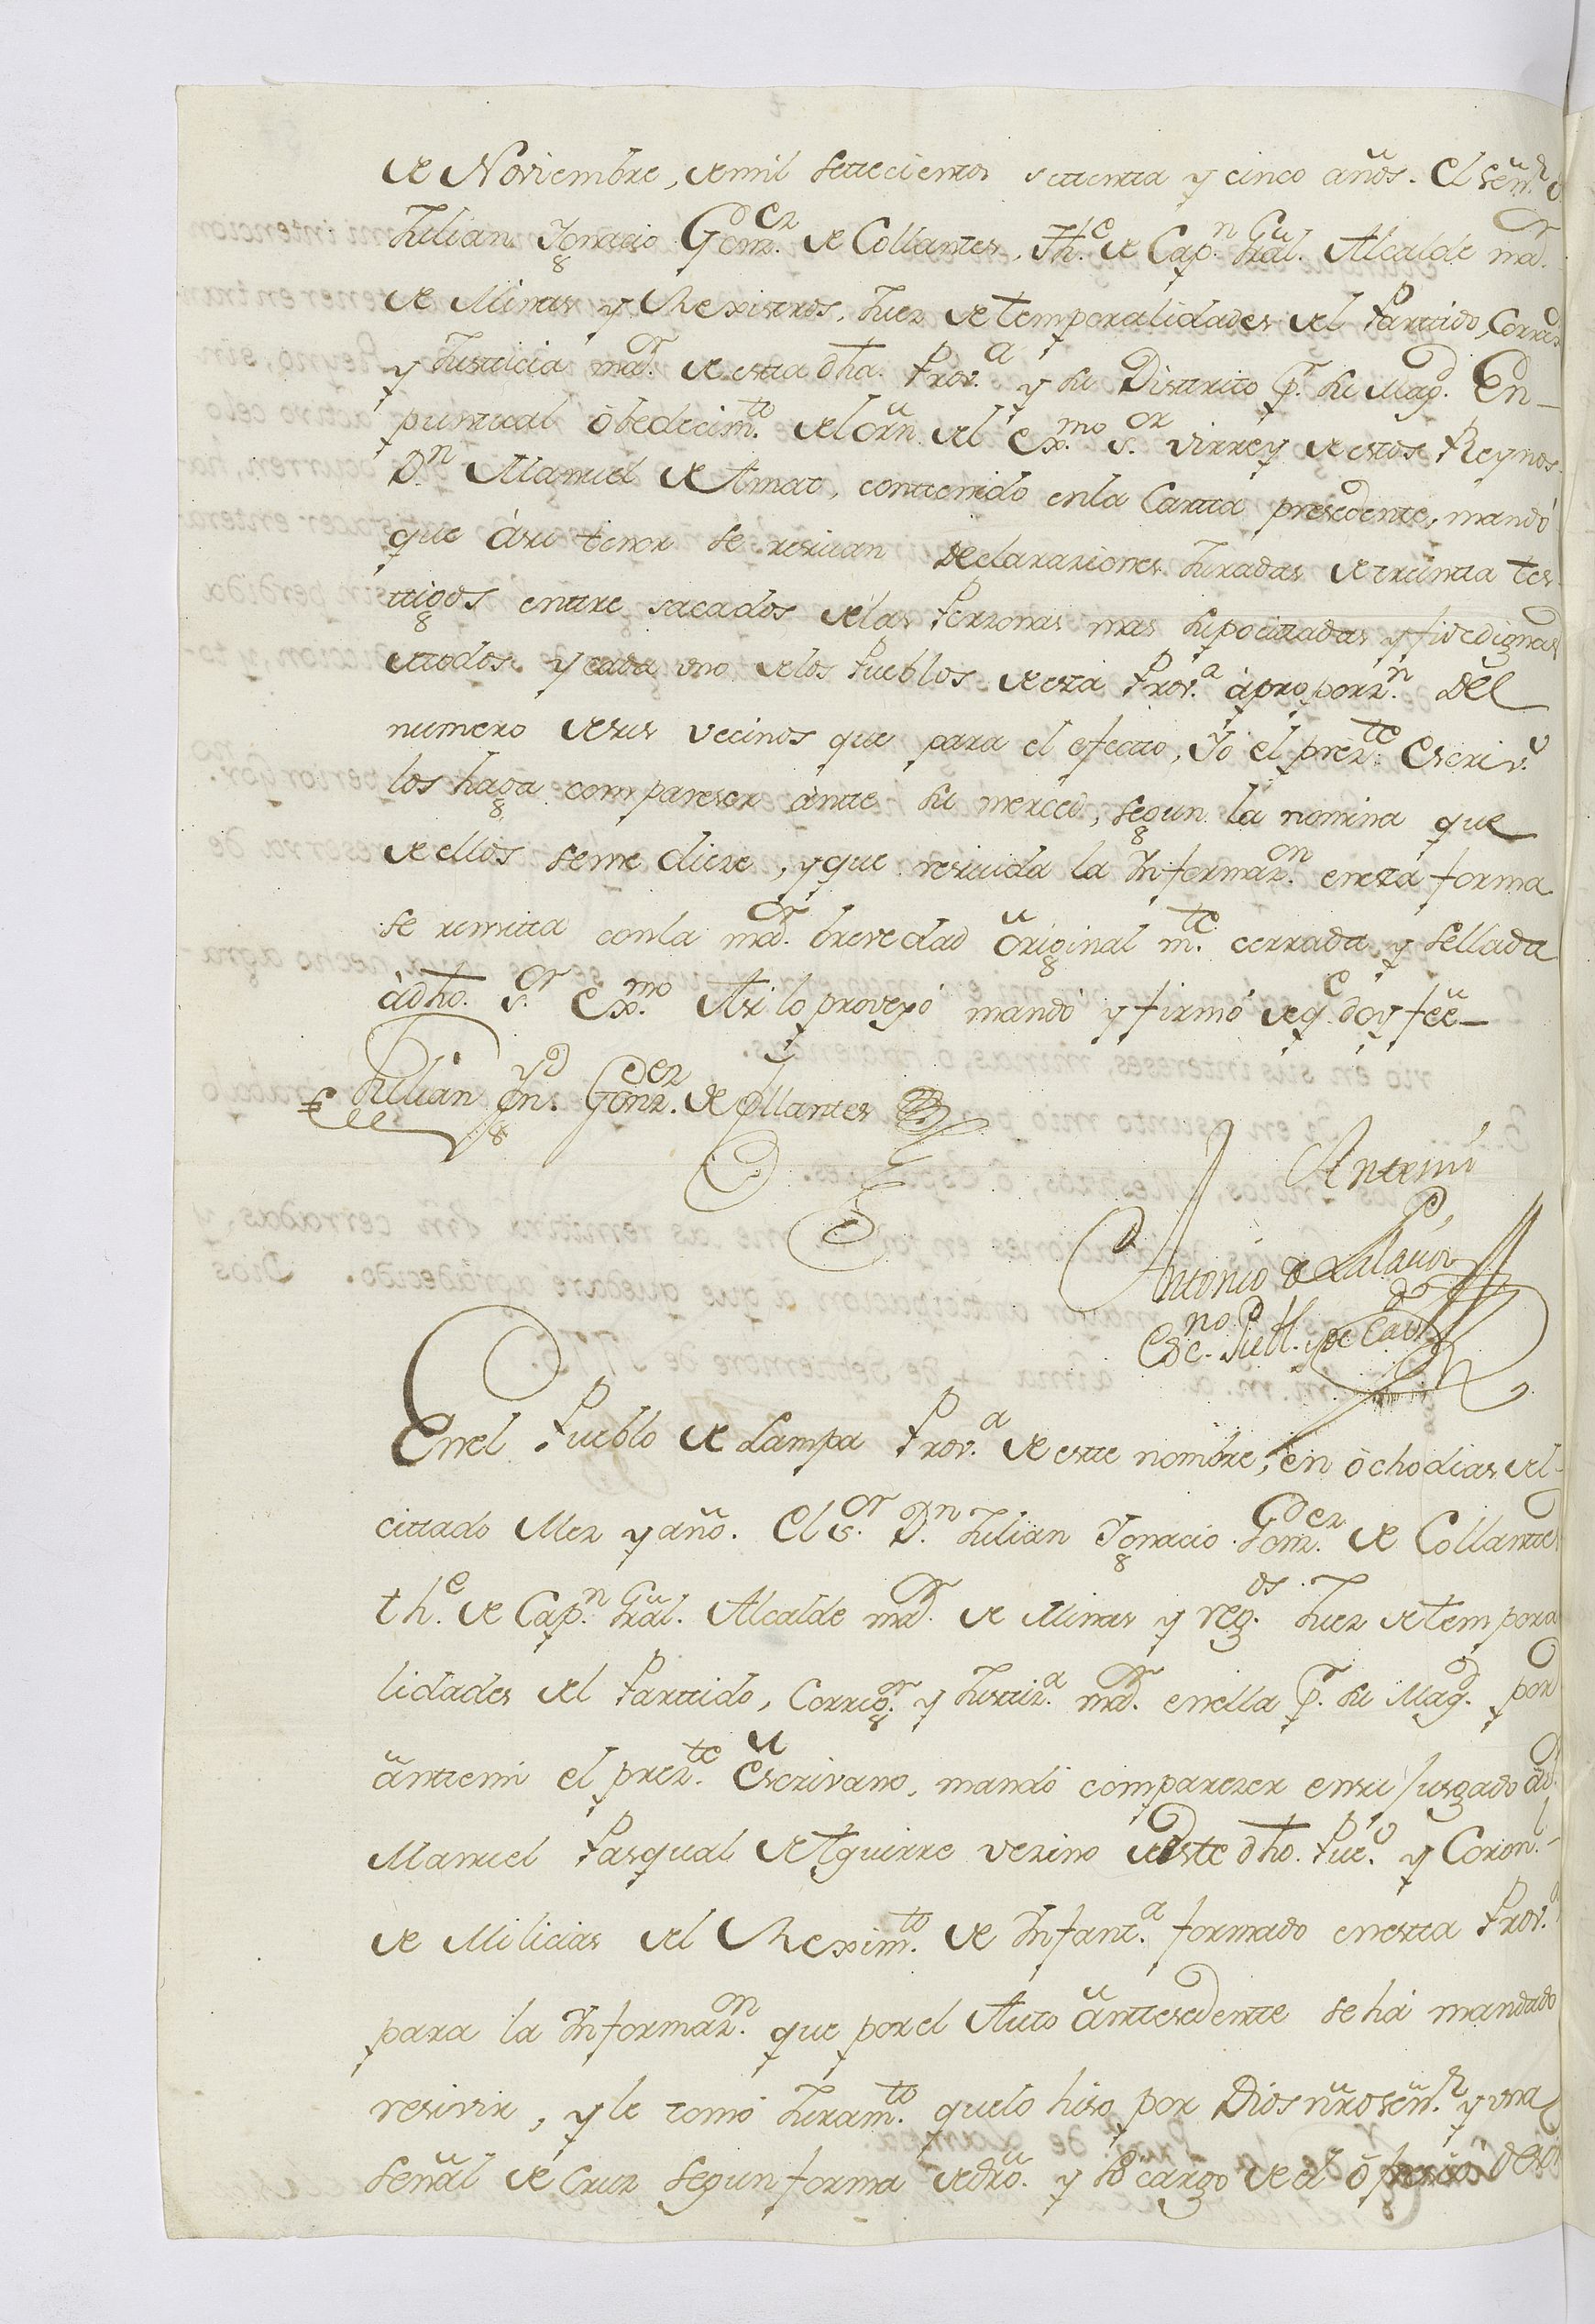 de Noviembre, de mil settecientos settenta y cinco años. El señ.r D.
Julian Ygnacio Gonz.ez de Collantes, Th.e de Cap.n Gral. Alcalde ma.or
de Minas y Rexistros, Juez de temporalidades del Partido, Corr.or
y Justicia ma.or de esta dha. Prov.a y su Distrito p.r su Mag.d En-
puntual obedecim.to del orn. del Ex.mo S.or Virrey de estos Reynos
D.n Manuel de Amat, contenido enla Carta presedente, mandó
que àsu tenor se resivan Declaraziones Juradas de treinta tes-
tigos entre sacados delas Perzonas mas supocitadas y fidedignas
de todos y cada uno delos Pueblos de esta Prov.a à proporz.n del
numero desus vecinos que para el efecto, Yo el prez.te Escriv.o
los haga compareser ànte su merced, segun la nomina que
de ellos seme diere, y que resivida la Informaz.on enesta forma
se remita conla ma.or brevedad original m.te cerrada y sellada
àdho. S.or Ex.mo Asi lo proveyó mandó y firmó deq.e doy feé—
Julian Yg.o Gonz.dez de Collantes
Antemi
Antonio de
Esc.no Pub. y de Cav.do
Enel Pueblo de Lampa Prov.a de este nombre, en òcho dias del
citado Mes y año. El S.or D.n Julian Ygnacio Gonz.dez de Collantes
th.e de Cap.n Gral. Alcalde ma.or de Minas y reg.os Juez de tempora
lidades del Partido, Correg.or y Justiz.a ma.or enella p.r su Mag.d por
antemi el prez.te Escrivano, mandó comparezer ensu Jusgado àd.
Manuel Pasqual de Aguirre vezino deeste dho. Pue.o y Coron.l
de Milicias del Reximi.to de Infant.a formado enesta Prov.a
para la Informaz.on que por el Auto antesedente se há mandado
resivir, y le tomó Juram.to quelo hiso por Dios nro señ.r y una
señal de Cruz segun forma dedro. y so cargo de el ofresió desir